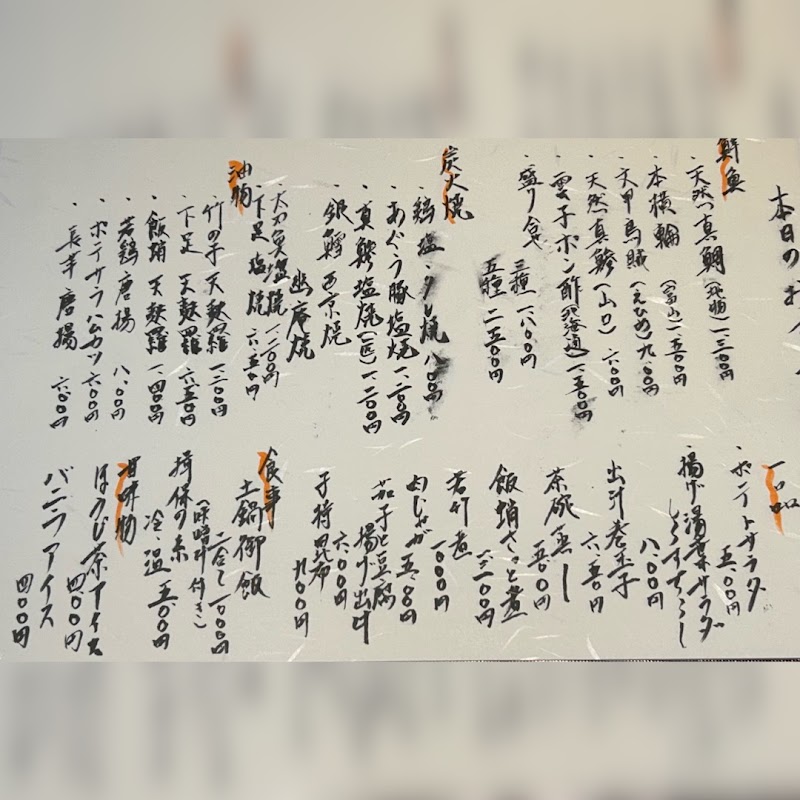 本日のお
鮮魚
・天然つ真鯛(飛物)一、三〇〇円
・本横輪(富山)一、五〇〇円
・大甲烏賊(えひめ)九〇〇円
・天然真鯵(山口)六〇〇円
・雲子ポン酢(北海道)一、五〇〇円
・盛り合せ
三種一、八〇〇円
五種二、五〇〇円
炭火焼
・鶏塩・タレ焼八〇〇円
・あぐう豚塩焼一、二〇〇円
・真鯵塩焼(一匹)一、二〇〇円
・銀鱈西京焼
幽庵焼
・太刀魚塩焼一、二〇〇円
・下足塩焼六五〇円
油物
・竹の子天麩羅一、二〇〇円
・下足天麩羅六五〇円
・飯蛸天麩羅一、四〇〇円
・若鶏唐揚八〇〇円
・ポテサラハムカツ六〇〇円
・長芋唐揚六〇〇円
一品
・ポテトサラダ
五〇〇円
・揚げ湯葉サラダ
八〇〇円
出汁巻玉子
六五〇円
茶碗蒸し
五〇〇円
飯蛸さっと煮
一、三〇〇円
若竹煮
一、〇〇〇円
肉じゃが五〇〇円
茄子と豆腐
揚げ出汁
六〇〇円
子持昆布
九〇〇円
食事
土鍋御飯
二合で一、〇〇〇円
(味噌汁付き)
揖保の糸
冷・温五〇〇円
甘味物
ほうじ茶アイス
四〇〇円
バニラアイス
四〇〇円